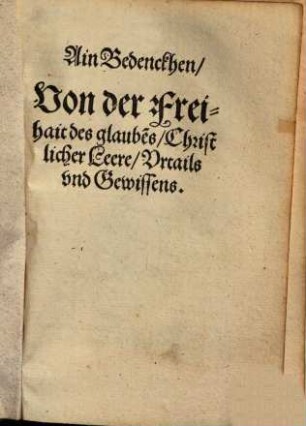 Ain Bedenckhen/
Von der Frei-
hait des glaubēs/Christ
licher Leere/Vrtails
vnd Gewissens.